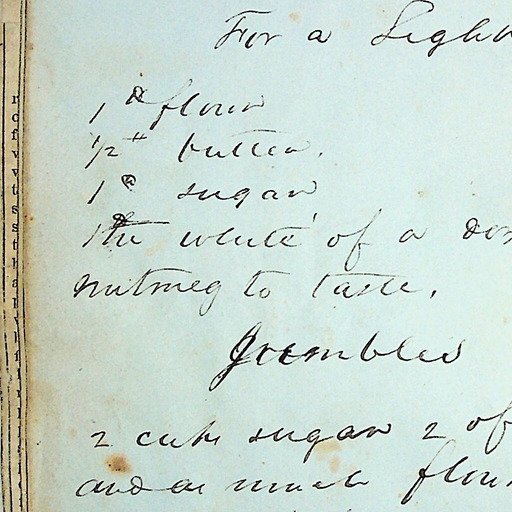 For a Light
1 lb flour
1/2 " butter.
1 lb sugar
The white of a doz
nutmeg to taste.
Jrumbles
2 cuts sugar 2 of
and as much flour